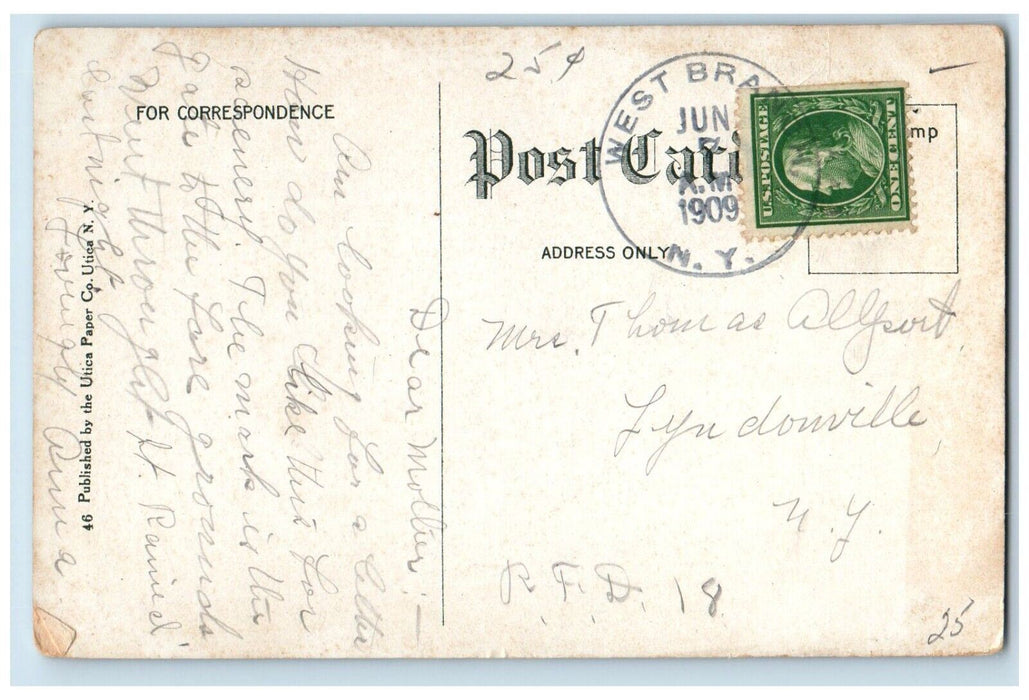 25¢
FOR CORRESPONDENCE
Post Card
WEST BRA
JUN
A.M.
1909
N. Y.
U.S. POSTAGE
ONE CENT
mp
ADDRESS ONLY
Mrs. Thomas Allport,
Lyndonville,
N. Y.
R. F. D. 18
25
Dear Mother:—
Am looking for a letter
How do you like this for
scenery. The mark is the
gate to the fare grounds
Went through it. Rained
last night
Lovingly Anna
46 Published by the Utica Paper Co. Utica N. Y.